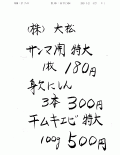 (株) 大松
サンマ開 特大
1枚 180円
身欠にしん
3本 300円
チムキエビ 特大
100g 500円